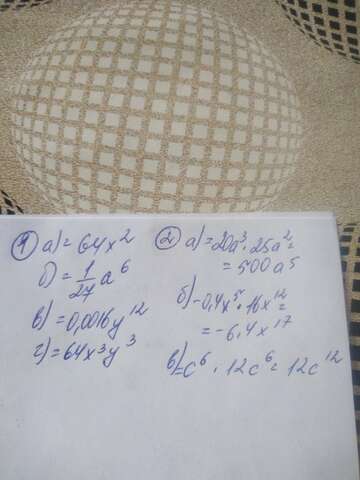 ① а) = 64x²
б) = 1/27 a⁶
в) = 0,0016y¹²
г) = 64x³y³
② а) = 20a³ · 25a² =
= 500a⁵
б) -0,4x⁵ · 16x¹² =
= -6,4x¹⁷
в) = c⁶ · 12c⁶ = 12c¹²